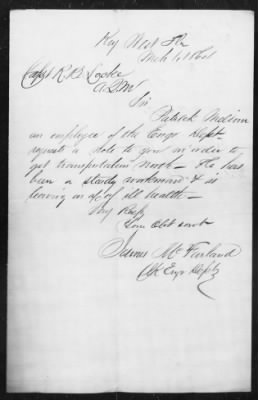 Key West Fla
Mch 1, 1864
Capt R. B. Locke
A.Q.M
Sir
Patrick
an employee of the Engr Dept
requests a note to you in order to
get transportation North - He has
been a steady workman & is
leaving on a/c of ill health -
Very Resp
Your Obt servt
James McFarland
Clk Engr Dept